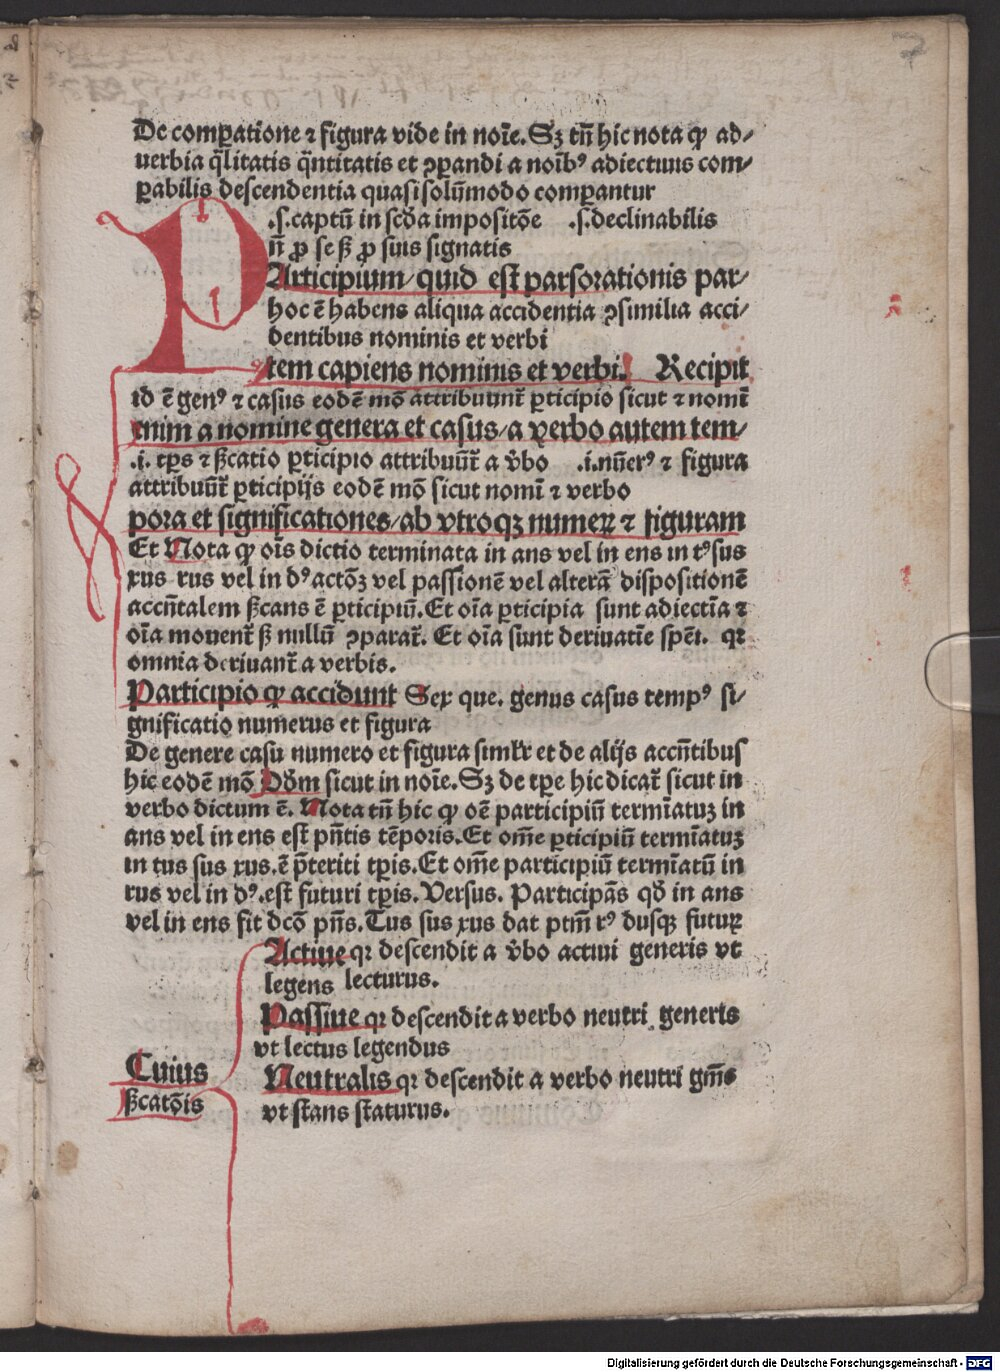 De comꝑatione ⁊ figura vide in noı̄e. Sꝫ tn̄ hic nota ꝙ ad⸗
uerbia q̄litatis q̄ntitatis et ꝯꝑandi a noı̄bꝰ adiectiuis com⸗
ꝑabilis descendentia quasi solūmodo comꝑantur
.s. captū in scd̄a impositōe .s. declinabilis
n̄ ꝓ se sꝫ ꝓ suis signatis
PArticipium/ quid est pars orationis par⸗
hoc ē habens aliqua accidentia ꝯsimilia acci⸗
dentibus nominis et verbi
tem capiens nominis et verbi. Recipit
id ē genꝰ ⁊ casus eodē mō attribuunt̄ ꝑticipio sicut ⁊ nomī
enim a nomine genera et casus/ a verbo autem tem⸗
.i. tꝑs ⁊ ßcatio ꝑticipio attribuūt̄ a v̄bo .i. nūerꝰ ⁊ figura
attribuūt̄ ꝑticipijs eodē mō sicut nomī ⁊ verbo
pora et significationes/ ab vtroqꝫ numeꝝ ⁊ figuram
Et Nota ꝙ oı̄s dictio terminata in ans vel in ens in tꝰ sus
xus rus vel in dꝰ actōꝫ vel passionē vel alterā dispositionē
accn̄talem ßcans ē ꝑticipiū. Et oı̄a ꝑticipia sunt adiectīa ⁊
oı̄a mouent̄ sꝫ nullū ꝯparat̄. Et oı̄a sunt deriuatīe spēi. qꝛ
omnia deriuant̄ a verbis.
Participio ꝙ accidunt Sex que. genus casus tempꝰ si⸗
gnificatio numerus et figura
De genere casu numero et figura simlr̄ et de alijs accn̄tibus
hic eodē mō d̄dm̄ sicut in noı̄e. Sꝫ de tꝑe hic dicat̄ sicut in
verbo dictum ē. Nota tn̄ hic ꝙ oē participiū termīatuꝫ in
ans vel in ens est pn̄tis tēporis. Et om̄e ꝑticipiū termīatuꝫ
in tus sus xus. ē p̄teriti tꝑis. Et om̄e participiū termīatū in
rus vel in dꝰ. est futuri tꝑis. Versus. Participās qd̄ in ans
vel in ens fit dcō pn̄s. Tus sus xus dat ptm̄ rꝰ dusqꝫ futuꝝ
Actiue qꝛ descendit a v̄bo actiui generis vt
legens lecturus.
Passiue qꝛ descendit a verbo neutri generis
vt lectus legendus
Cuius
ßcatōis
Neutralis qꝛ descendit a verbo neutri gn̄is
vt stans staturus.
Digitalisierung gefördert durch die Deutsche Forschungsgemeinschaft - DFG